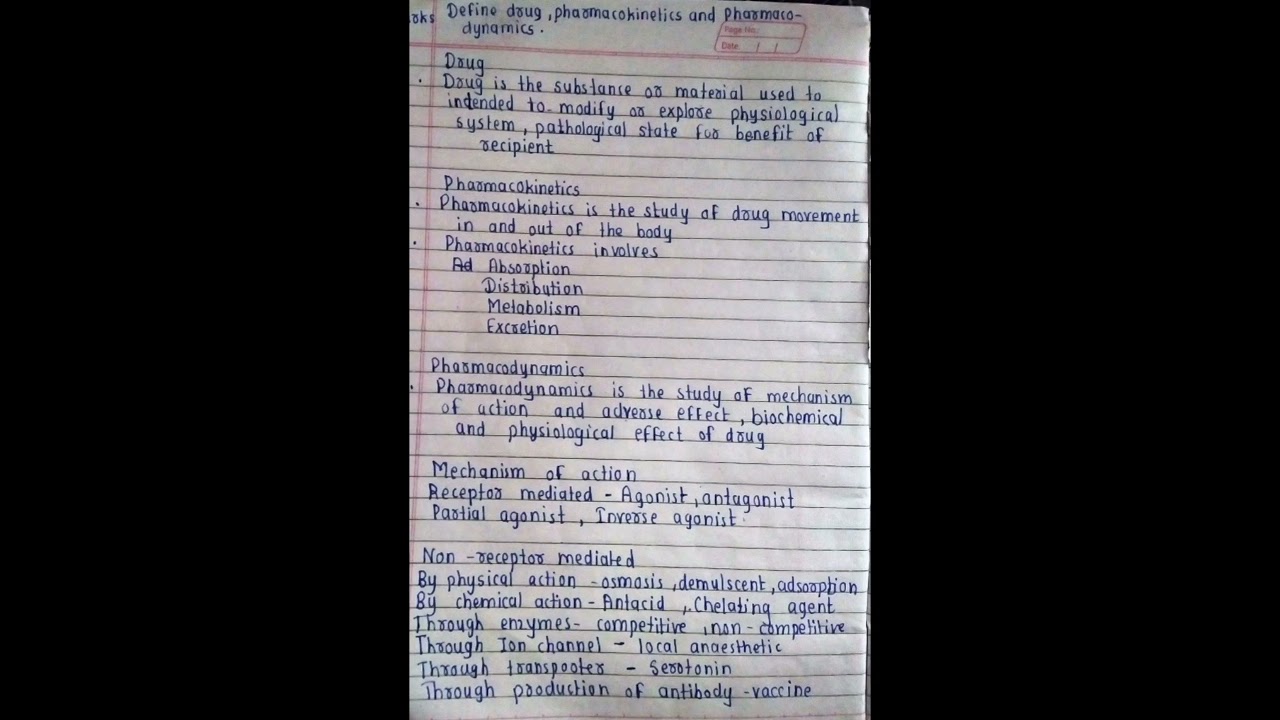 Define drug, pharmacokinetics and Pharmaco-
dynamics.
Page No.:
Date: / /
Drug
. Drug is the substance or material used to
intended to modify or explore physiological
system, pathological state for benefit of
recipient
Pharmacokinetics
. Pharmacokinetics is the study of drug movement
in and out of the body
. Pharmacokinetics involves
Ad Absorption
Distribution
Metabolism
Excretion
Pharmacodynamics
. Pharmacodynamics is the study of mechanism
of action and adverse effect, biochemical
and physiological effect of drug
Mechanism of action
Receptor mediated - Agonist, antagonist
Partial agonist, Inverse agonist.
Non-receptor mediated
By physical action - osmosis, demulscent, adsorption
By chemical action - Antacid, Chelating agent
Through enzymes - competitive, non-competitive
Through Ion channel - local anaesthetic
Through transpoter - Serotonin
Through production of antibody - vaccine